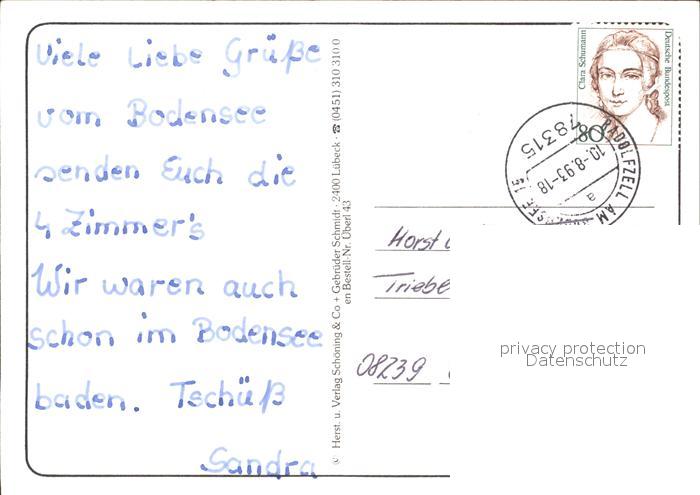 Viele Liebe Grüße
vom Bodensee
senden Euch die
4 Zimmer's
Wir waren auch
schon im Bodensee
baden. Tschüß
Sandra
© Herst. u. Verlag Schöning & Co + Gebrüder Schmidt · 2400 Lübeck · ☎ (0451) 310 310 0
en Bestell-Nr. Überl 43
Clara Schumann
Deutsche Bundespost
80
78315
10.-8.93-18
a
RADOLFZELL AM
Horst
Triebe
08239
privacy protection
Datenschutz